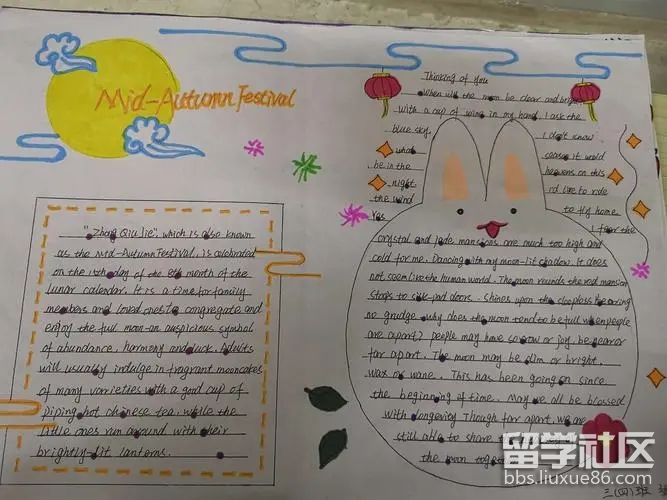 Mid-Autumn Festival
"Zhong Qiu Jie", which is also known
as the Mid-Autumn Festival, is celebrated
on the 15th day of the 8th month of the
lunar calendar. It is a time for family
members and loved ones to congregate and
enjoy the full moon-an auspicious symbol
of abundance. harmony and luck. Adults
will usually indulge in fragrant mooncakes
of many varrieties with a good cup of
piping hot chinese tea, while the
little ones run around with their
brightly-lit lanterns.
Thinking of you
When will the moon be clear and bright
with a cup of wine in my hand, I ask the
blue sky. I don't know
what season it would
be in the heavens on this
night. I'd like to ride
the wind to fly home.
Yes I fear the
crystal and jade mansions are much too high and
cold for me. Dancing with my moon-lit shadow. It does
not seem like the human world. The moon rounds the red mansion
stoops to silk-pad doors. shines upon the sleepless bearing
no grudge why does the moon tend to be full when people
are apart? people may have sorrow or joy. be near or
far apart. The moon may be dim or bright
wax or wane. This has been going on since
the beginning of time. May we all be blessed
with longevity Though far apart, we are
still able to share
the moon together
三(四)班
留学社区
bbs.liuxue86.com